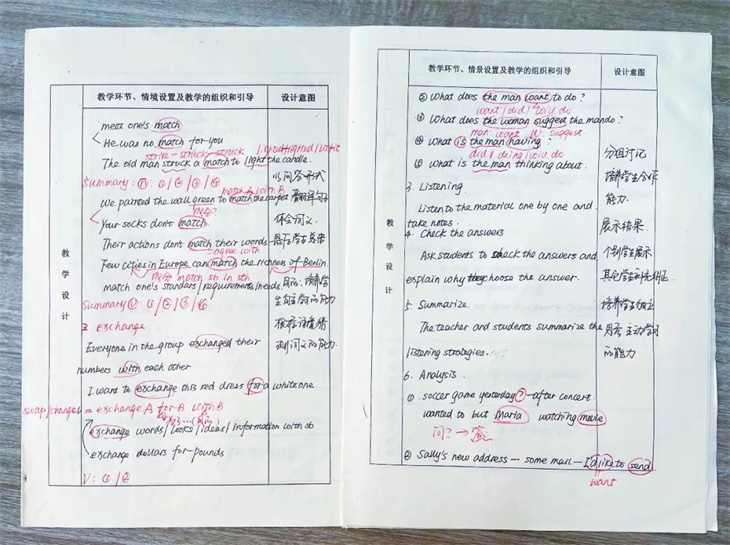 教学环节、情境设置及教学的组织和引导
设计意图
教学设计
meet one's match
He was no match for you
strike-struck-struck
The old man struck a match to light the candle.
Summary: ①. ② / ③ / ④
match A with B
We painted the wall green to match the carpet
Your socks don't match.
Their actions don't match their words
=agree with
Few cities in Europe can match the richness of Berlin.
match sb in sth
match one's standars/requirements/needs
Summary
2. exchange
Everyone in the group exchanged their
numbers with each other
I want to exchange this red dress for a white one
swap/change = exchange A for B with B
exchange words/looks/ideas/information with sb
exchange dollars for pounds.
以问答形式
翻译句子
体会词义.
目的: 培养学
生自主学习的能力
根据语境猜
测词义的能力.
教学环节、情景设置及教学的组织和引导
设计意图
教学设计
③ What does the man want to do?
want / did / will do
What does the woman suggest the man do?
man want W: suggest
④ What is the man having?
did / doing / will do
What is the man thinking about.
3. Listening.
Listen to the material one by one and
take notes.
4. Check the answers
Ask students to check the answers and
explain why they choose the answer.
5. Summarize.
The teacher and students summarize the
listening strategies.
6. Analysis.
① soccer game yesterday? - after concert
wanted to but Maria watching movie
问: →
② Sally's new address — some mail — I'd like to send
want
分组讨论
培养学生合作
能力.
展示结果.
个别学生展示
其他学生补充纠正
培养学生独立
思考主动学习
的能力